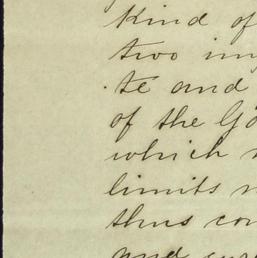 kind of
two im
te and
of the Go
which
limits
thus con
and